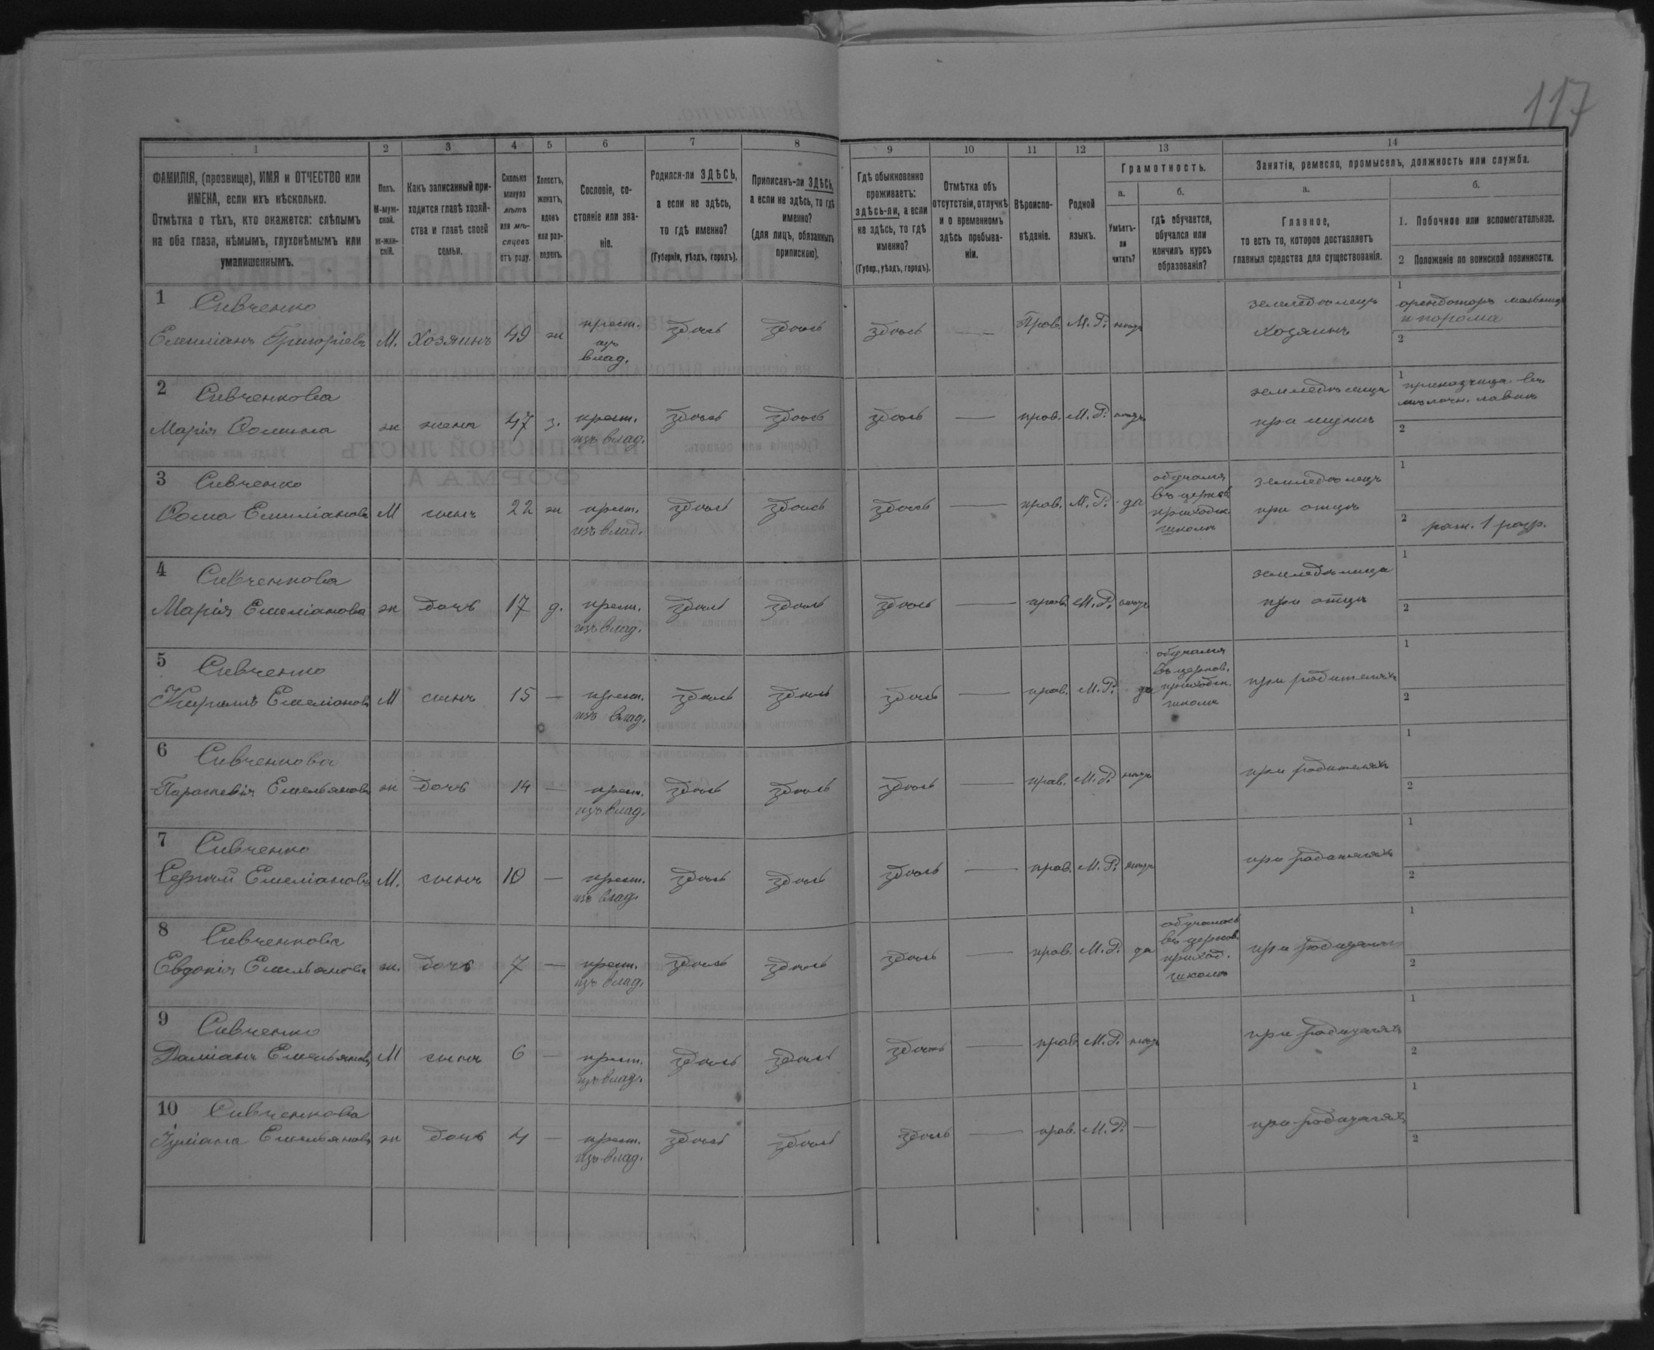 117
1 2 3 4 5 6 7 8 9 10 11 12 13 14
ФАМИЛІЯ, (прозвище), ИМЯ и ОТЧЕСТВО или
ИМЕНА, если ихъ нѣсколько.
Отмѣтка о тѣхъ, кто окажется: слѣпымъ
на оба глаза, нѣмымъ, глухонѣмымъ или
умалишеннымъ.
Полъ.
М-муж-
ской.
ж-жен-
скій.
Какъ записанный при-
ходится главѣ хозяй-
ства и главѣ своей
семьи.
Сколько
минуло
лѣтъ
или мѣ-
сяцевъ
отъ роду.
Холостъ,
женатъ,
вдовъ
или раз-
веденъ.
Сословіе, со-
стояніе или зва-
ніе.
Родился-ли ЗДѢСЬ,
а если не здѣсь,
то гдѣ именно?
(Губернія, уѣздъ, городъ).
Приписанъ-ли ЗДѢСЬ,
а если не здѣсь, то гдѣ
именно?
(для лицъ, обязанныхъ
припискою).
Гдѣ обыкновенно
проживаетъ:
здѣсь-ли, а если
не здѣсь, то гдѣ
именно?
(Губер., уѣздъ, городъ).
Отмѣтка объ
отсутствіи, отлучкѣ
и о временномъ
здѣсь пребыва-
ніи.
Вѣроиспо-
вѣданіе.
Родной
языкъ.
Грамотность.
а.
Умѣетъ-
ли
читать?
б.
гдѣ обучается,
обучался или
кончилъ курсъ
образованія?
Занятія, ремесло, промыселъ, должность или служба.
а.
Главное,
то есть то, которое доставляетъ
главныя средства для существованія.
б.
1. Побочное или вспомогательное.
2 Положеніе по воинской повинности.
1 Сивченко
Емиліанъ Григоріевъ М. Хозяинъ 49 ж крест. изъ влад. здѣсь здѣсь здѣсь — Прав. М. Р. нѣтъ земледѣлецъ хозяинъ
1 арендаторъ мельницы и парома
2
2 Сивченкова
Марія Фомина ж жена 47 з. крест. изъ влад. здѣсь здѣсь здѣсь — прав. М. Р. нѣтъ земледѣлица при мужѣ
1
2
3 Сивченко
Фома Емиліановъ М сынъ 22 ж крест. изъ влад. здѣсь здѣсь здѣсь — прав. М. Р. да обучался въ церков. приходск. школѣ земледѣлецъ при отцѣ
1
2 рат. 1 разр.
4 Сивченкова
Марія Емеліанова ж дочь 17 д. крест. изъ влад. здѣсь здѣсь здѣсь — прав. М. Р. нѣтъ земледѣлица при отцѣ
1
2
5 Сивченко
Кириллъ Емеліановъ М сынъ 15 — крест. изъ влад. здѣсь здѣсь здѣсь — прав. М. Р. да обучался въ церков. приходск. школѣ при родителяхъ
1
2
6 Сивченкова
Параскевія Емельянова ж дочь 14 — крест. изъ влад. здѣсь здѣсь здѣсь — прав. М. Р. нѣтъ при родителяхъ
1
2
7 Сивченко
Сергий Емеліановъ М. сынъ 10 — крест. изъ влад. здѣсь здѣсь здѣсь — прав. М. Р. нѣтъ при родителяхъ
1
2
8 Сивченкова
Евдокія Емельянова ж. дочь 7 — крест. изъ влад. здѣсь здѣсь здѣсь — прав. М. Р. да обучалась въ церков. приход. школѣ при родителяхъ
1
2
9 Сивченко
Даміанъ Емельяновъ М сынъ 6 — крест. изъ влад. здѣсь здѣсь здѣсь — прав. М. Р. нѣтъ при родителяхъ
1
2
10 Сивченкова
Іуліана Емельянова ж дочь 4 — крест. изъ влад. здѣсь здѣсь здѣсь — прав. М. Р. — при родителяхъ
1
2